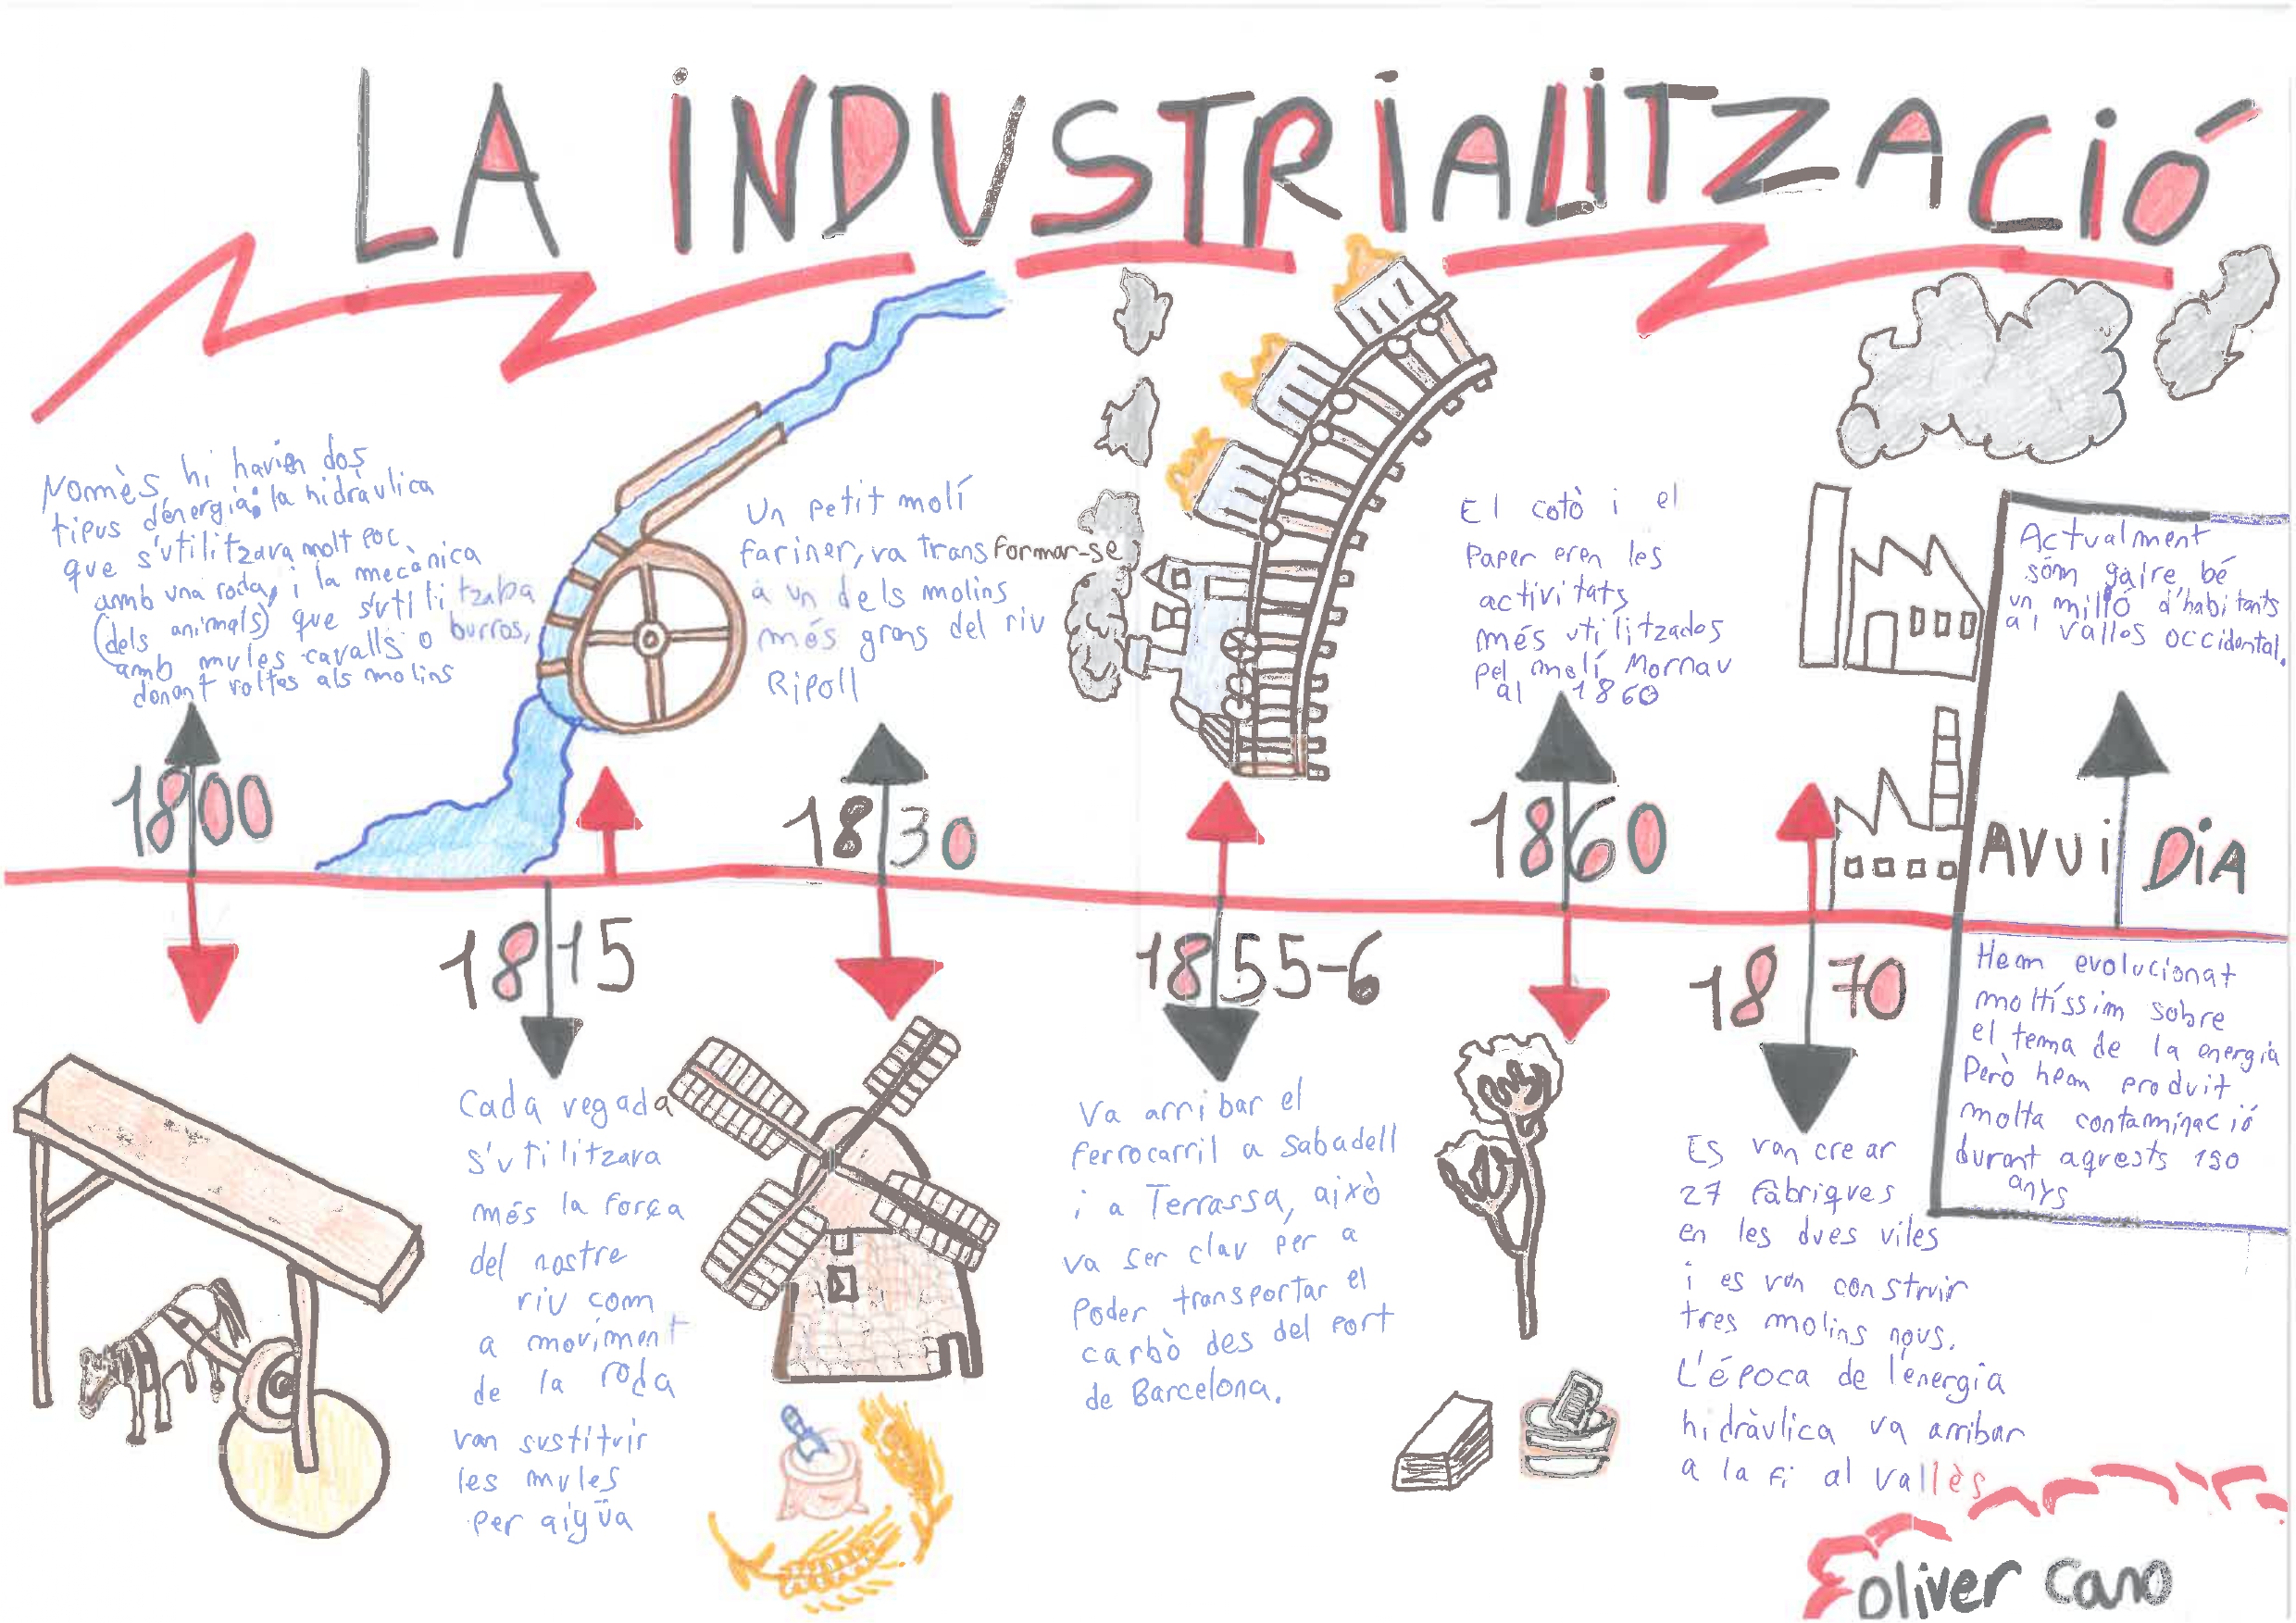 LA INDUSTRIALITZACIÓ
Nomès hi havien dos
tipus d'energia: la hidràulica
que s'utilitzava molt poc
amb una roda, i la mecànica
(dels animals) que s'utilitzaba
amb mules cavalls o burros,
donant voltes als molins
1800
Cada vegada
s'utilitzava
més la força
del nostre
riu com
a moviment
de la roda
van sustituir
les mules
per aigüa
1815
Un petit molí
fariner, va transformar-se
a un dels molins
més grans del riu
Ripoll
1830
Va arribar el
ferrocarril a Sabadell
i a Terrassa, això
va ser clau per a
poder transportar el
carbò des del port
de Barcelona.
1855-6
El cotò i el
paper eren les
activitats
més utilitzados
pel molí Mornau
al 1860
1860
1870
Es van crear
27 fàbriques
en les dues viles
i es van construir
tres molins nous.
L'época de l'energia
hidràulica va arribar
a la fi al vallès
Actualment
sóm gaire bé
un milló d'habitants
al Vallos occidental.
AVUI DIA
Hem evolucionat
moltíssim sobre
el tema de la energia
Però hem produit
molta contaminació
durant aquests 190
anys
oliver cano